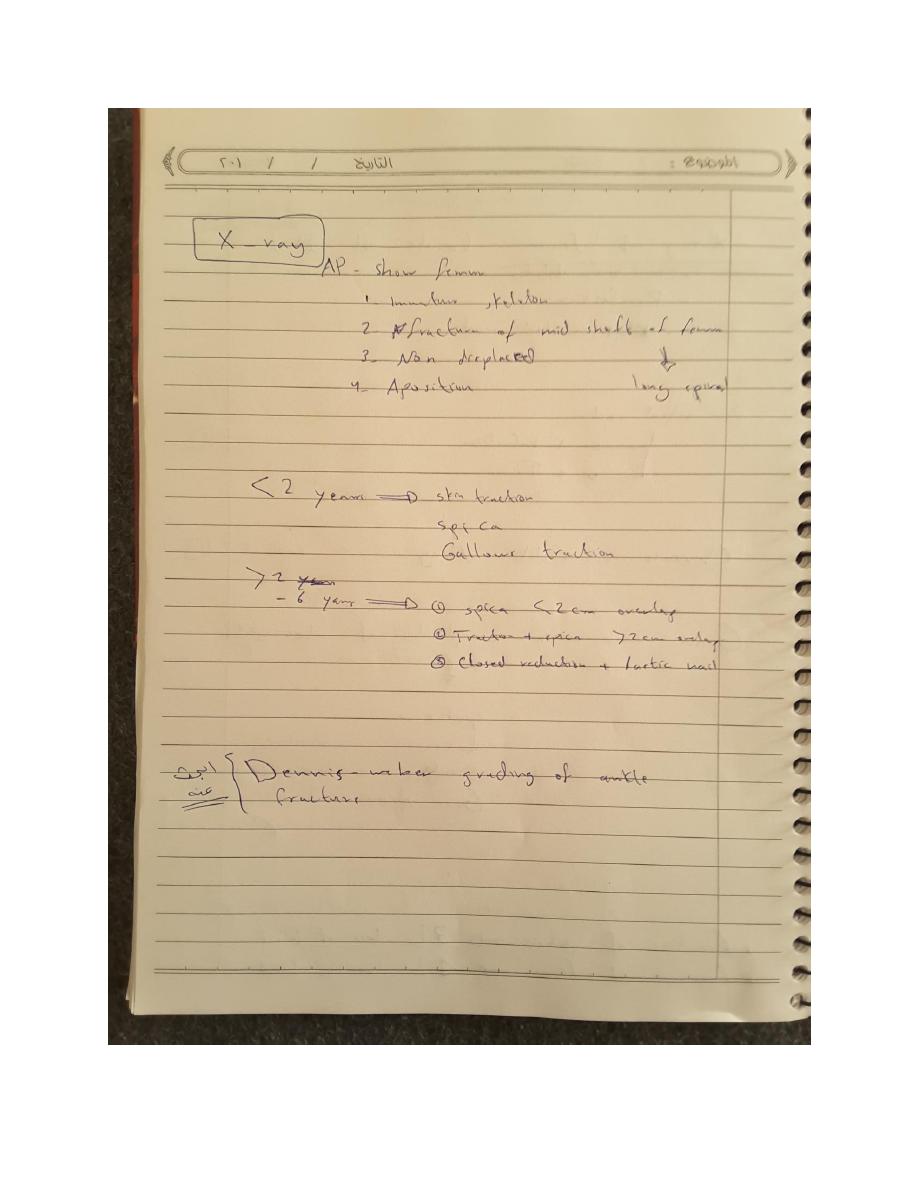 الموضوع :
التاريخ / / ٢٠١
X-ray
AP - show femur
1- Immature skeleton
2- fracture of mid shaft of femur
3- Non displaced
long spiral
4- Aposition
< 2 years ⇒ skin traction
spica
Gallows traction
> 2
- 6 years ⇒ ① spica < 2 cm overlap
② Traction + spica > 2 cm overlap
③ Closed reduction + lastic nail
ابحث عنه { Dennis-weber grading of ankle
fracture